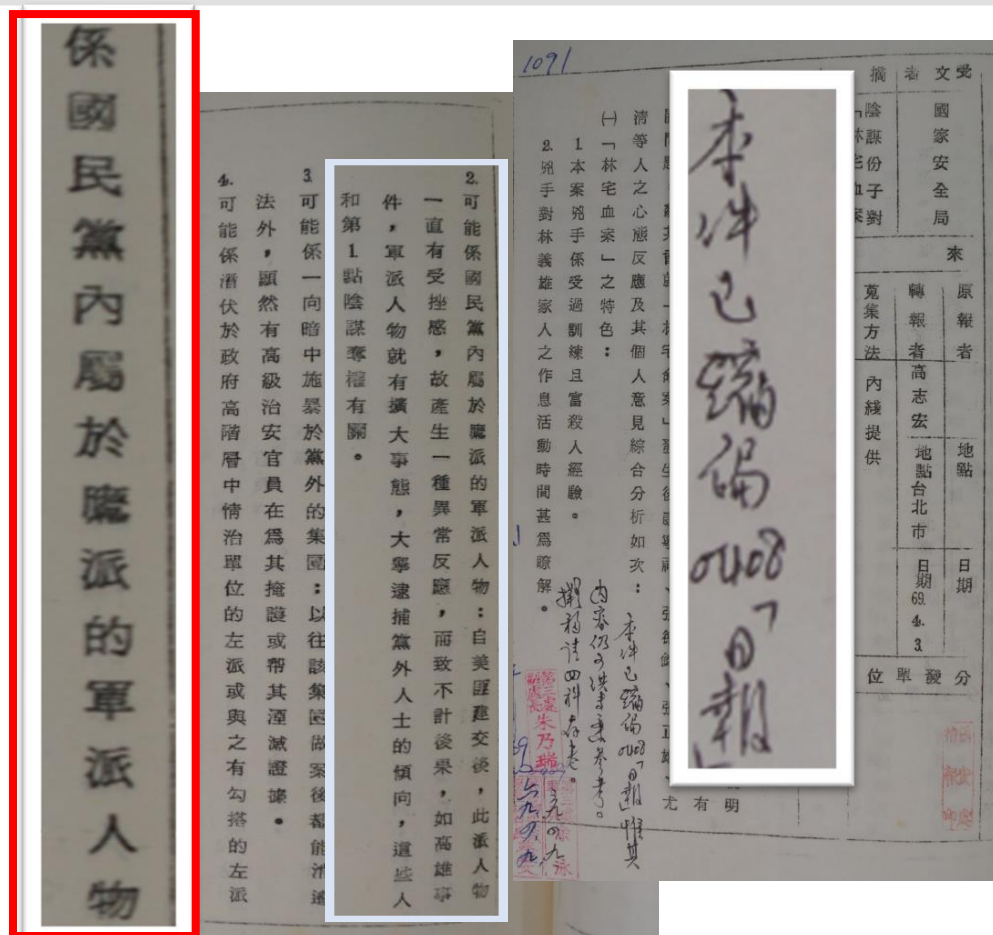 係國民黨內屬於鷹派的軍派人物
2.可能係國民黨內屬於鷹派的軍派人物：自美匪建交後，此派人物
一直有受挫感，故產生一種異常反應，而致不計後果，如高雄事
件，軍派人物就有擴大事態，大舉逮捕黨外人士的傾向，這些人
和第1.點陰謀奪權有關。
3.可能係一向暗中施暴於黨外的集團：以往該集團做案後都能逍遙
法外，顯然有高級治安官員在為其掩護或帮其湮滅證據。
4.可能係潛伏於政府高階層中情治單位的左派或與之有勾搭的左派
1091
受文者
國家安全局
摘
陰謀份子對
血案
來
原報者
轉報者
高志宏
地點
地點台北市
日期
日期69.4.3.
蒐集方法
內綫提供
分發單位
本件已編偈0408「日報」
尤有明
清等人之心態反應及其個人意見綜合分析如次：
㈠「林宅血案」之特色：
1.本案兇手係受過訓練且富殺人經驗。
2.兇手對林義雄家人之作息活動時間甚為瞭解。
本件已編偈0408「日報」惟其
內容仍可供專案參考。
擬移請四科存卷。
朱乃瑞